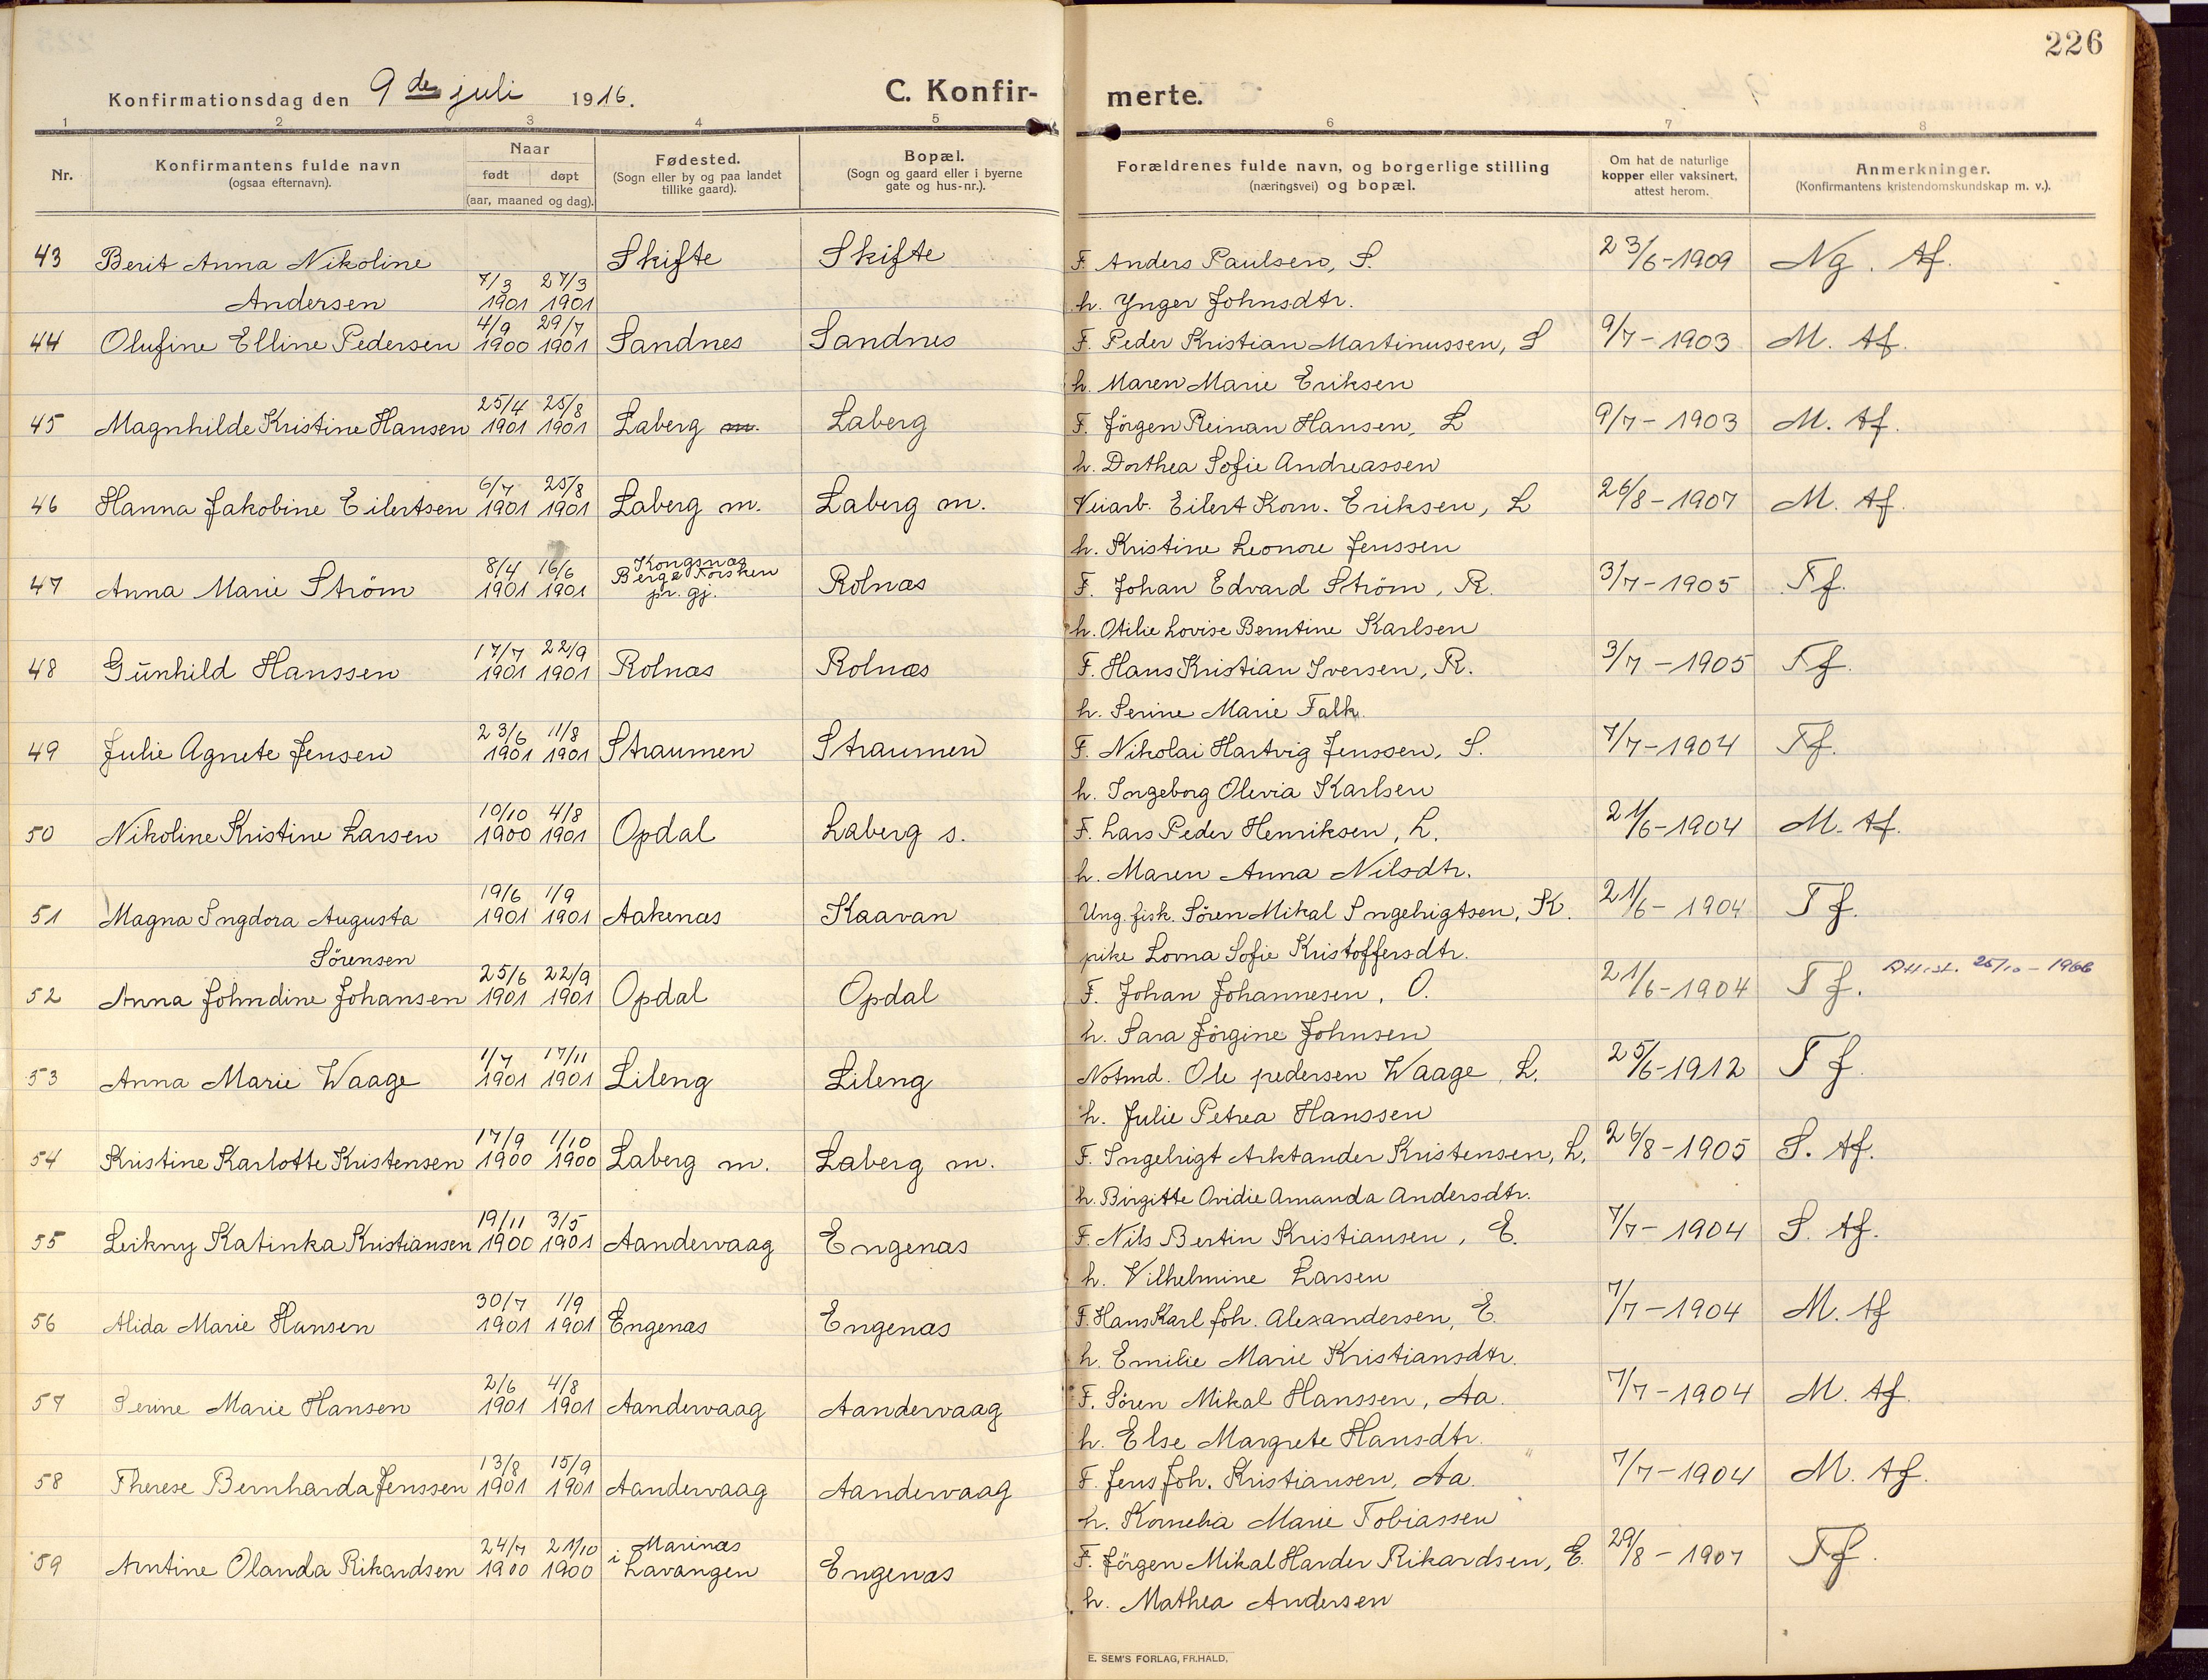 226
Konfirmationsdag den 9de juli 1916.
C. Konfir-
merte.
1 2 3 4 5 6 7 8
Nr.
Konfirmantens fulde navn
(ogsaa efternavn).
Naar
født døpt
(aar, maaned og dag).
Fødested.
(Sogn eller by og paa landet
tillike gaard).
Bopæl.
(Sogn og gaard eller i byerne
gate og hus-nr.).
Forældrenes fulde navn, og borgerlige stilling
(næringsvei) og bopæl.
Om hat de naturlige
kopper eller vaksinert,
attest herom.
Anmerkninger.
(Konfirmantens kristendomskundskap m. v.).
43 Berit Anna Nikoline Skifte Skifte F. Anders Paulsen, S. 23/6-1909 Ng. Af.
7/3 27/3
Andersen 1901 1901 h. Ynger Johnsdtr.
4/9 29/7
44 Olufine Elline Pedersen 1900 1901 Sandnes Sandnes F. Peder Kristian Martinussen, S 9/7-1903 M. Af.
h. Maren Marie Eriksen
25/4 25/8
45 Magnhilde Kristine Hansen 1901 1901 Laberg m. Laberg F. Jörgen Reinan Hansen, L 9/7-1903 M. Af.
h. Dorthea Sofie Andreassen
6/7 25/8
46 Hanna Jakobine Eilertsen 1901 1901 Laberg m. Laberg m. Veiarb. Eilert Korn. Eriksen, L 26/8-1907 M. Af.
h. Kristine Leonore Jenssen
8/4 16/6 Kongsnæs
Berg Torsken
47 Anna Marie Ström 1901 1901 pr. gj. Rolnæs F. Johan Edvard Ström, R. 3/7-1905 Tf.
h. Otilie Lovise Berntine Karlsen
17/7 22/9
48 Gunhild Hanssen 1901 1901 Rolnæs Rolnæs F. Hans Kristian Iversen, R. 3/7-1905 Tf.
h. Serine Marie Falk.
23/6 11/8
49 Julie Agnete Jensen 1901 1901 Straumen Straumen F. Nikolai Hartvig Jenssen, S. 7/7-1904 Tf.
h. Ingeborg Olevia Karlsen
10/10 4/8
50 Nikoline Kristine Larsen 1900 1901 Opdal Laberg s. F. Lars Peder Henriksen, L. 21/6-1904 M. Af.
h. Maren Anna Nilsdtr.
19/6 1/9
51 Magna Ingdora Augusta 1901 1901 Aakenæs Kaavan Ung. fisk. Sören Mikal Ingebrigtsen, K. 21/6-1904 Tf.
Sörensen pike Lorna Sofie Kristoffersdtr.
25/6 22/9
52 Anna Johndine Johansen 1901 1901 Opdal Opdal F. Johan Johannesen, O. 21/6-1904 Tf. Attest. 25/10-1966
h. Sara Jörgine Johnsen
1/7 17/11
53 Anna Marie Waage 1901 1901 Lileng Lileng Notmd. Ole pedersen Waage, L. 25/6-1912 Tf.
h. Julie Petrea Hanssen
17/9 1/10
54 Kristine Karlotte Kristensen 1900 1900 Laberg m. Laberg m. F. Ingebrigt Arktander Kristensen, L. 26/8-1905 S. Af.
h. Birgitte Ovidie Amanda Andersdtr.
19/11 3/5
55 Leikny Katinka Kristiansen 1900 1901 Aandervaag Engenæs F. Nils Bertin Kristiansen, E. 7/7-1904 S. Af.
h. Vilhelmine Larsen
30/7 1/9
56 Alida Marie Hansen 1901 1901 Engenæs Engenæs F. Hans Karl Joh. Alexandersen, E. 7/7-1904 M. Af
h. Emilie Marie Kristiansdtr.
2/6 4/8
57 Serine Marie Hansen 1901 1901 Aandervaag Aandervaag F. Sören Mikal Hanssen, Aa. 7/7-1904 M. Af.
h. Else Margrete Hansdtr.
13/8 15/9
58 Therese Bernharda Jenssen 1901 1901 Aandervaag Aandervaag F. Jens Joh. Kristiansen, Aa. 7/7-1904 M. Af.
h. Kornelia Marie Tobiassen
24/7 21/10 i Marinæs
59 Antine Olanda Rikardsen 1900 1900 Lavangen Engenæs F. Jörgen Mikal Harder Rikardsen, E. 29/8-1907 Tf.
h. Mathea Andersen
E. SEM'S FORLAG, FR.HALD.